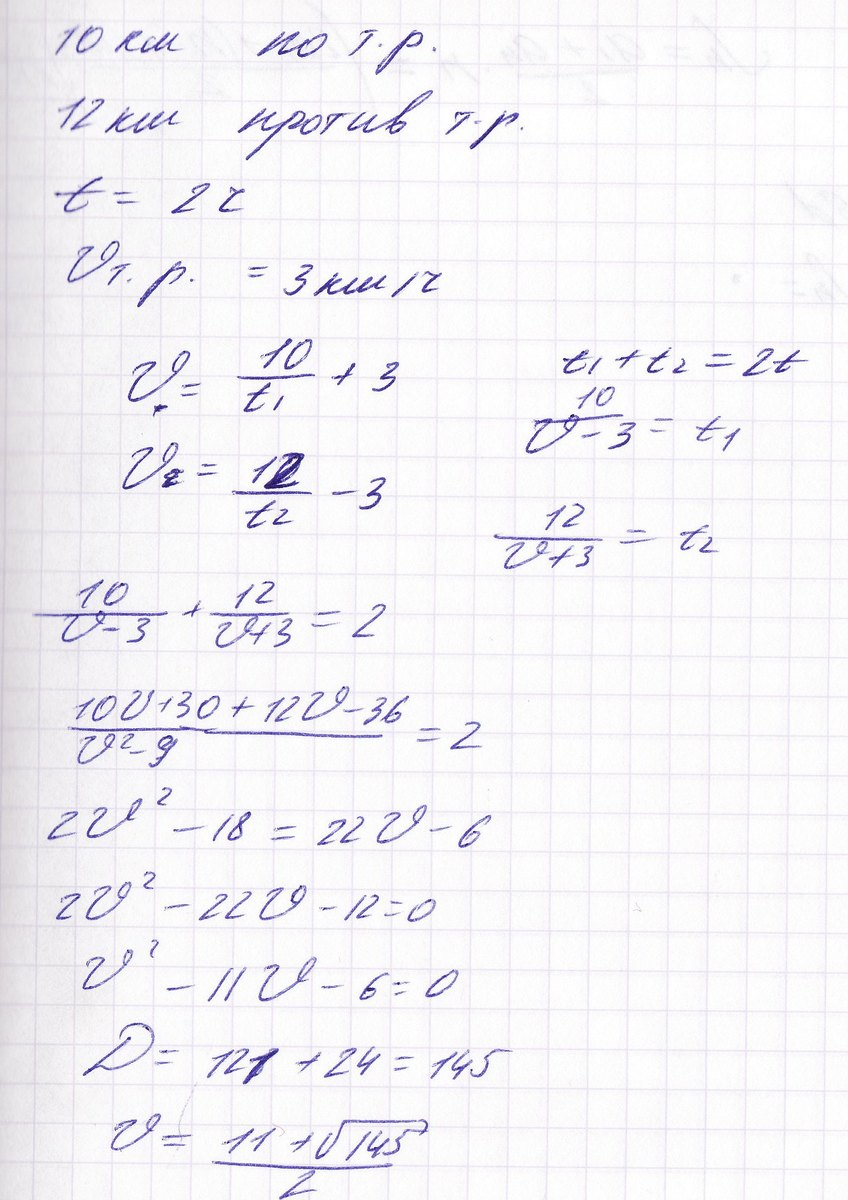 10 км по т.р.
12 км против т.р.
t = 2 ч
Vт.р. = 3 км/ч
V = 10/t₁ + 3
t₁ + t₂ = 2t
10/(V-3) = t₁
V₂ = 12/t₂ - 3
12/(V+3) = t₂
10/(V-3) + 12/(V+3) = 2
(10V+30+12V-36)/(V²-9) = 2
2V² - 18 = 22V - 6
2V² - 22V - 12 = 0
V² - 11V - 6 = 0
D = 121 + 24 = 145
V = (11 + √145)/2